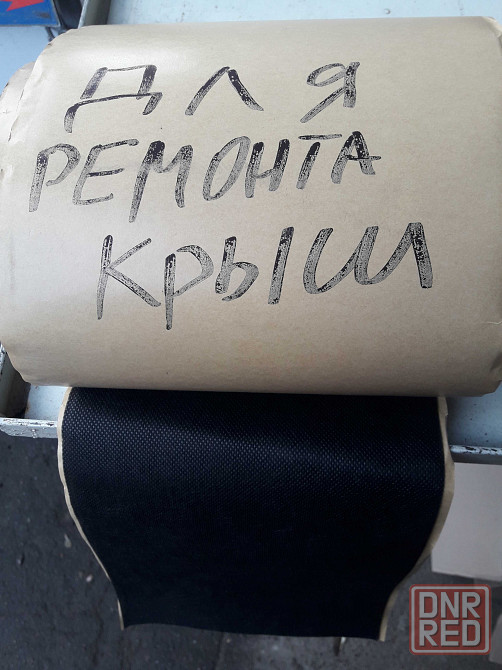 ДЛЯ
РЕМОНТА
КРЫШ
DNR
RED